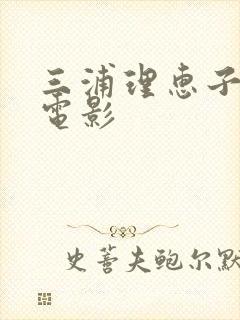 三浦理恵子
電影
史蒈夫鲍尔默